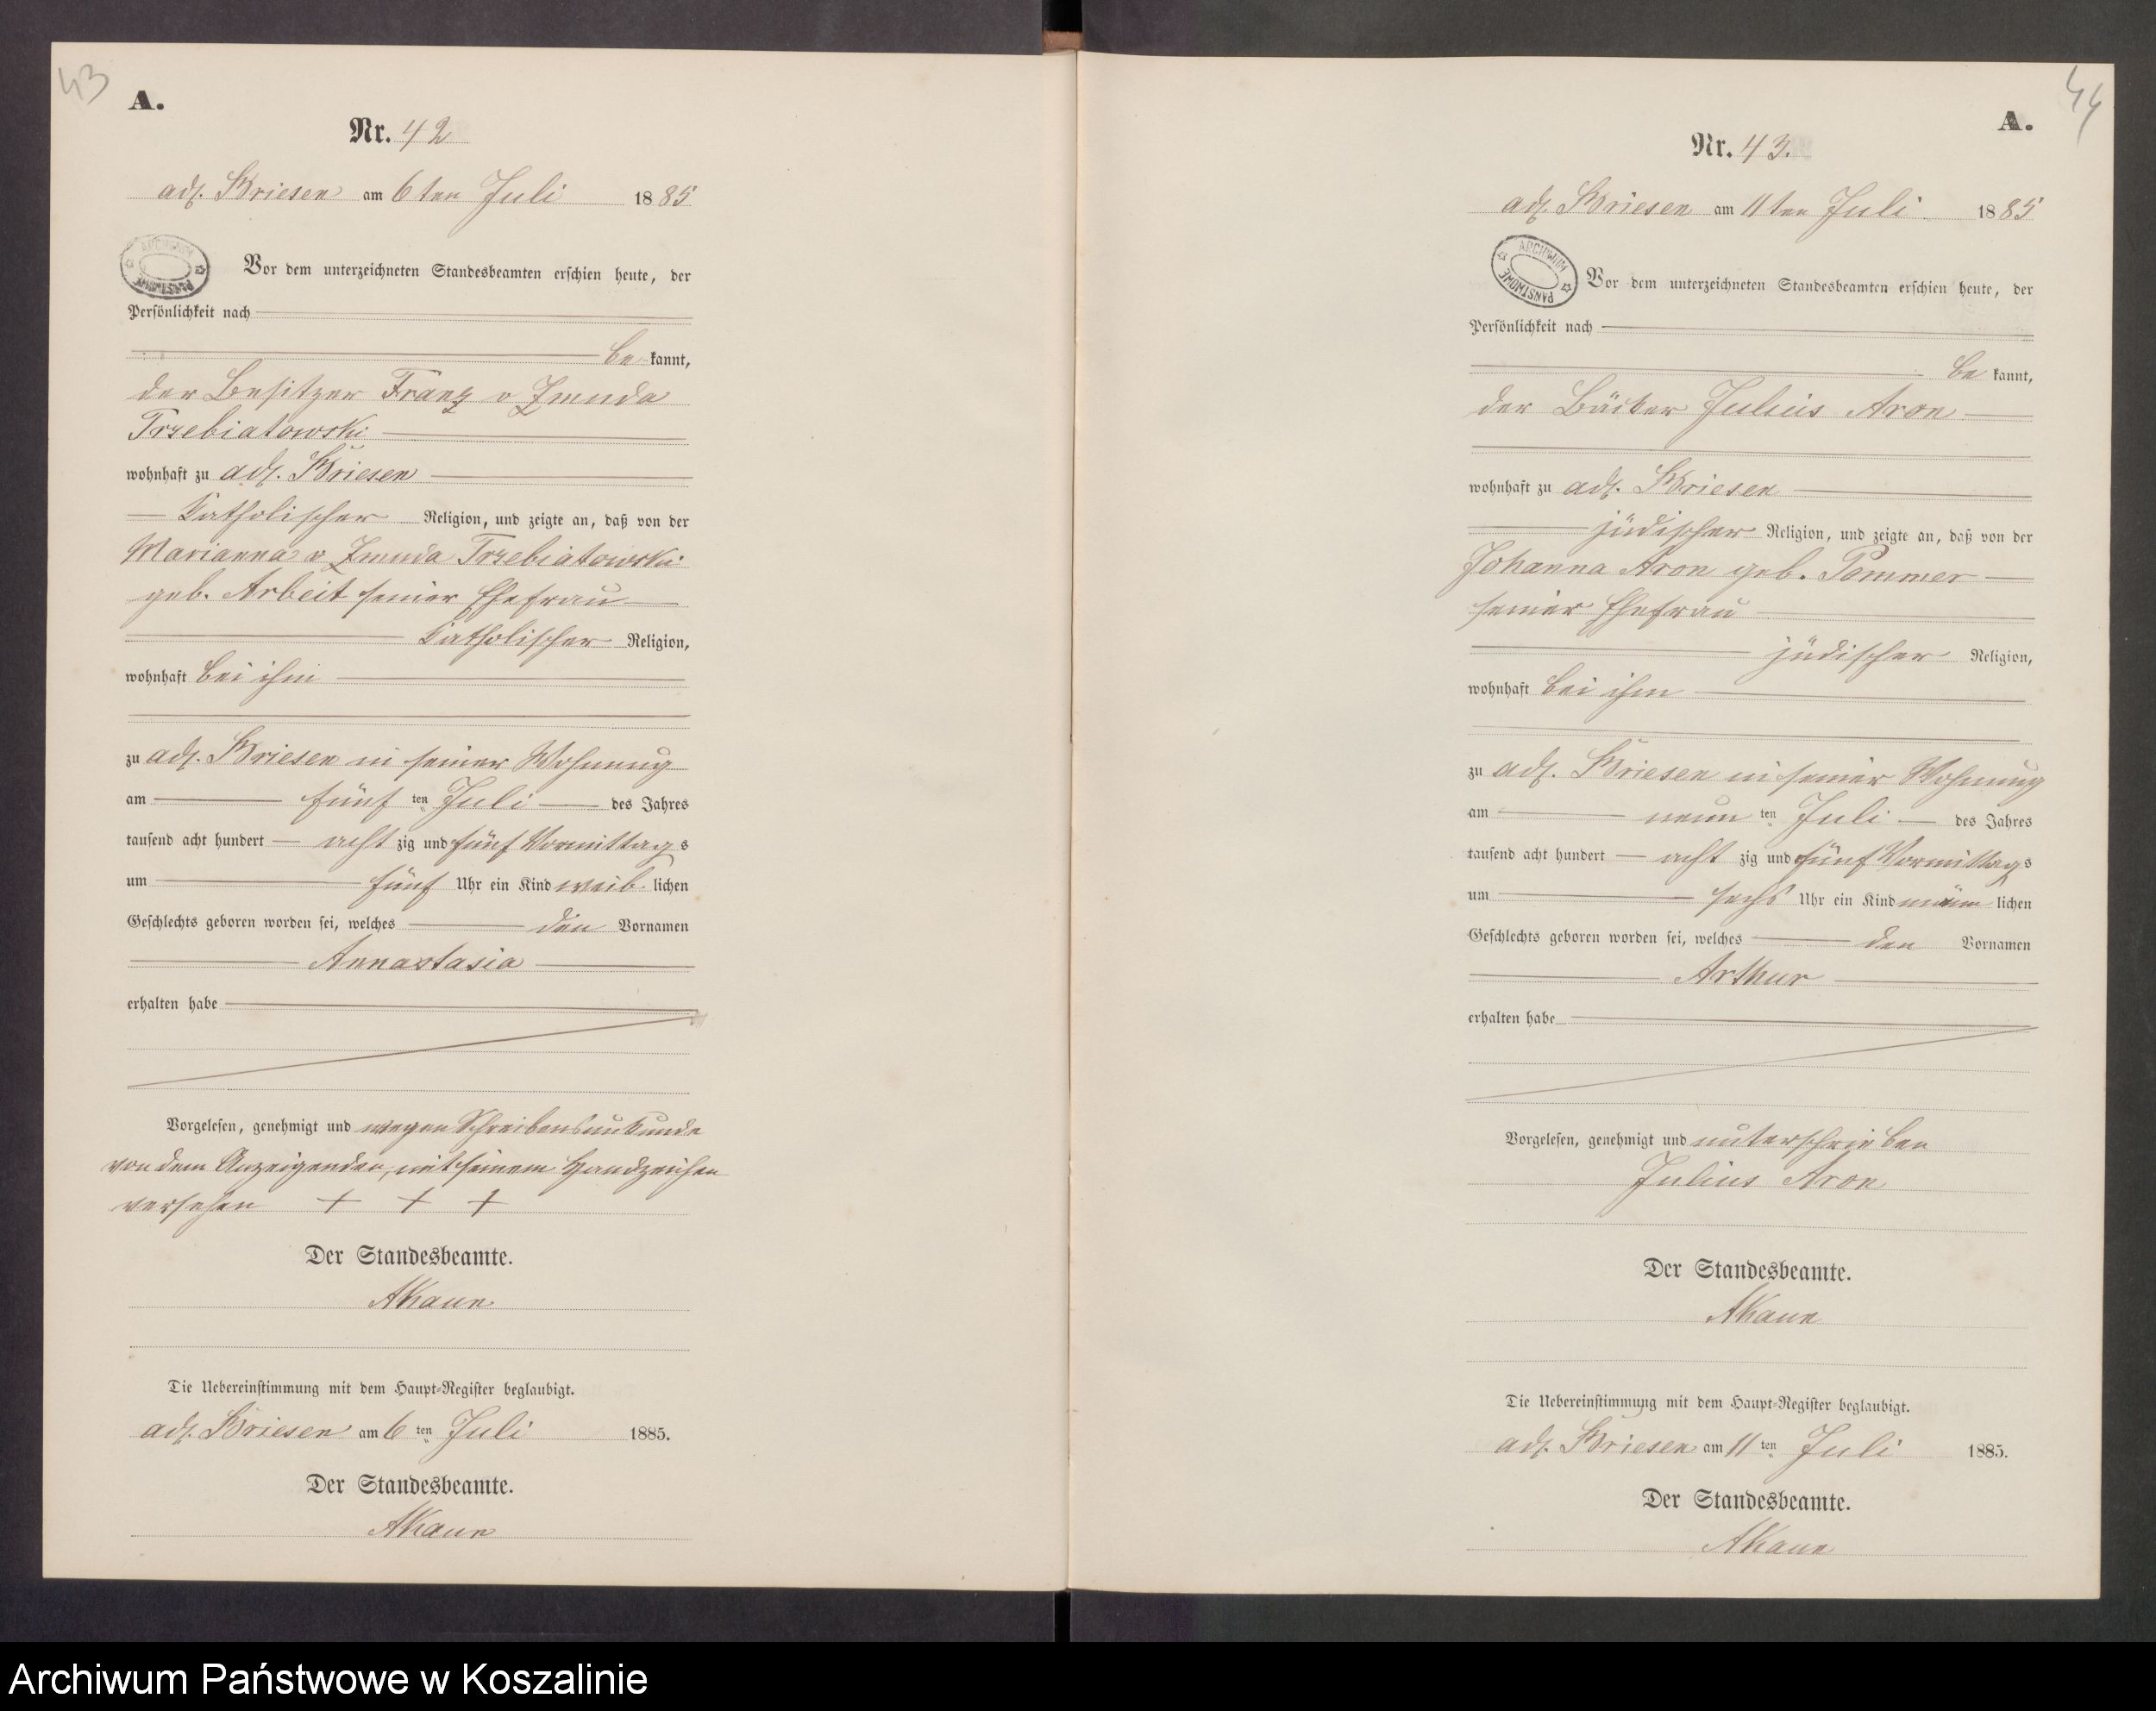 43
A.
Nr. 42
adl. Briesen am 6ten Juli 1885
ARCHIWUM PAŃSTWOWE
Vor dem unterzeichneten Standesbeamten erschien heute, der
Persönlichkeit nach
be kannt,
der Besitzer Franz v Zmuda
Trzebiatowski
wohnhaft zu adl. Briesen
katholischer Religion, und zeigte an, daß von der
Marianna v Zmuda Trzebiatowski
geb. Arbeit seiner Ehefrau
katholischer Religion,
wohnhaft bei ihm
zu adl. Briesen in seiner Wohnung
am fünf ten Juli des Jahres
tausend acht hundert acht zig und fünf Vormittag s
um fünf Uhr ein Kind weib lichen
Geschlechts geboren worden sei, welches den Vornamen
Annastasia
erhalten habe
Vorgelesen, genehmigt und wegen Schreibensunkunde
von dem Anzeigenden, mit seinem Handzeichen
versehen + + +
Der Standesbeamte.
AKaun
Die Uebereinstimmung mit dem Haupt-Register beglaubigt.
adl. Briesen am 6 ten Juli 1885.
Der Standesbeamte.
AKaun
44
A.
Nr. 43.
adl. Briesen am 11ten Juli 1885
ARCHIWUM PAŃSTWOWE
Vor dem unterzeichneten Standesbeamten erschien heute, der
Persönlichkeit nach
be kannt,
der Bäcker Julius Aron
wohnhaft zu adl. Briesen
jüdischer Religion, und zeigte an, daß von der
Johanna Aron geb. Pommer
seiner Ehefrau
jüdischer Religion,
wohnhaft bei ihm
zu adl. Briesen in seiner Wohnung
am neun ten Juli des Jahres
tausend acht hundert acht zig und fünf Vormittag s
um sechs Uhr ein Kind männ lichen
Geschlechts geboren worden sei, welches den Vornamen
Arthur
erhalten habe
Vorgelesen, genehmigt und unterschrieben
Julius Aron
Der Standesbeamte.
AKaun
Die Uebereinstimmung mit dem Haupt-Register beglaubigt.
adl. Briesen am 11 ten Juli 1885.
Der Standesbeamte.
AKaun
Archiwum Państwowe w Koszalinie